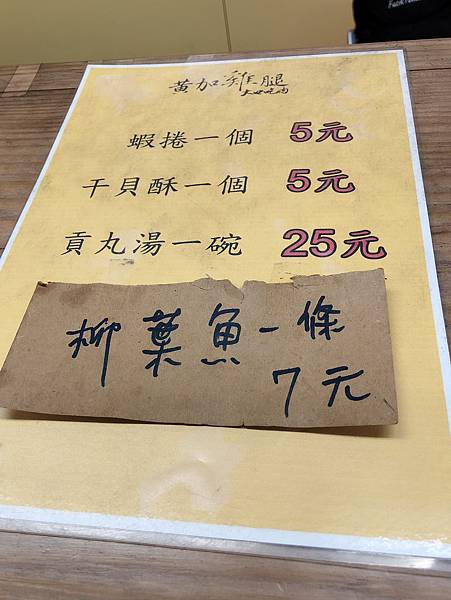 黃加雞腿
蝦捲一個 5元
干貝酥一個 5元
貢丸湯一碗 25元
柳葉魚一條
7元